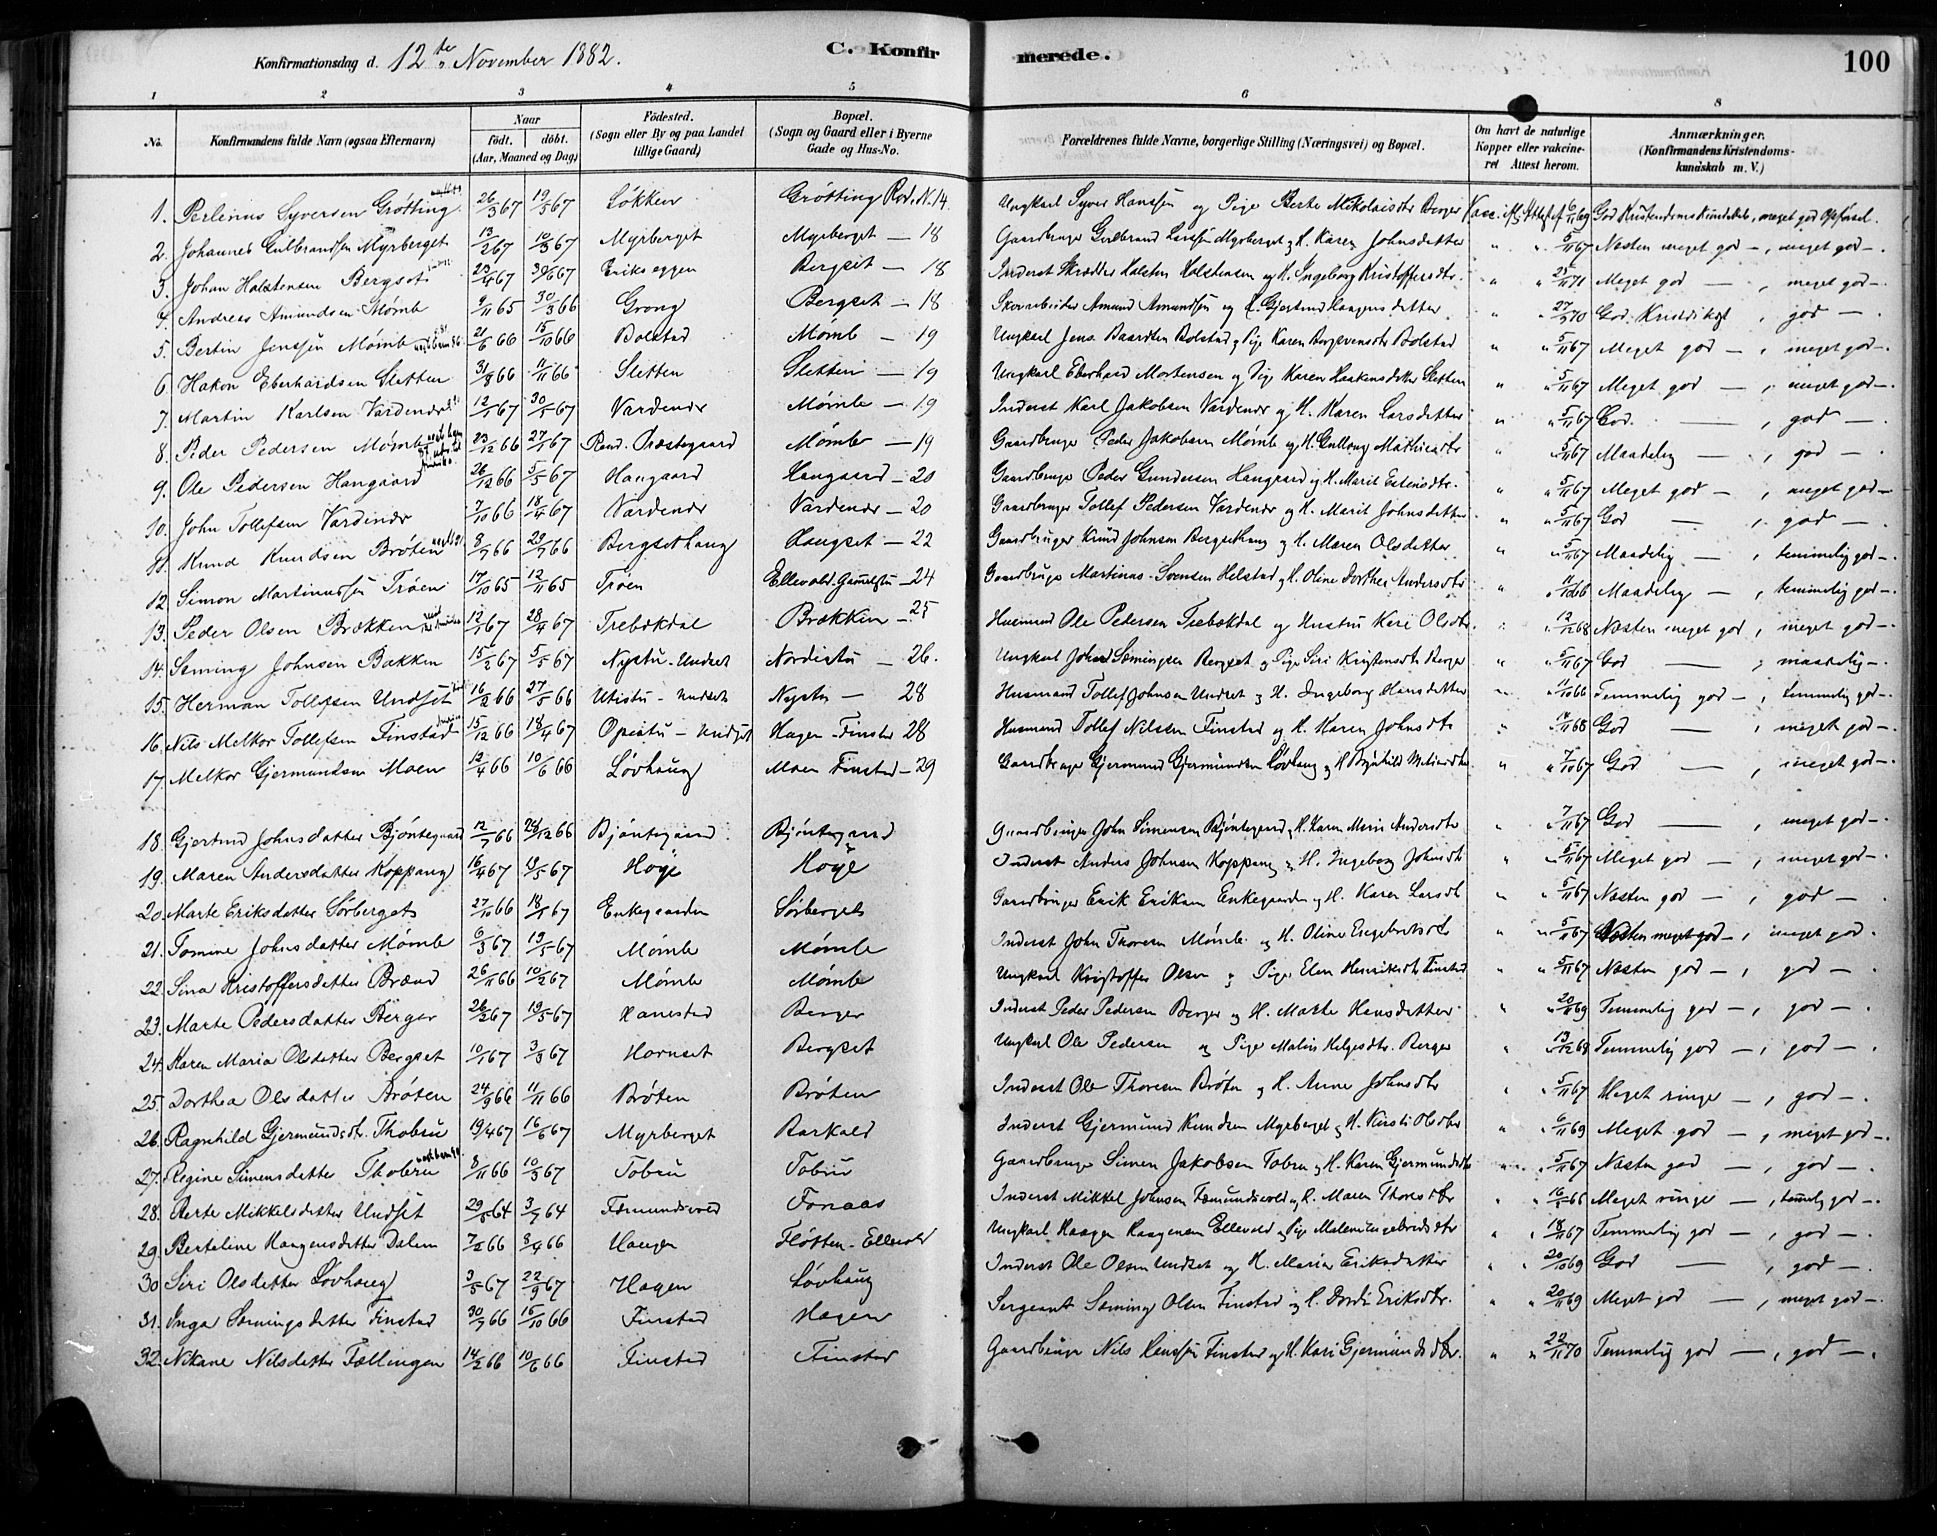 Konfirmationsdag d. 12te November 1882.
C. Konfirmerede.
100
1 2 3 4 5 6 8
No. Konfirmandens fulde Navn (ogsaa Efternavn) Naar født. døbt. (Aar, Maaned og Dag) Fødested. (Sogn eller By og paa Landet tillige Gaard) Bopæl. (Sogn og Gaard eller i Byerne Gade og Hus-No. Forældrenes fulde Navne, borgerlige Stilling (Næringsvei) og Bopæl. Om havt de naturlige Kopper eller vakcineret Attest herom. Anmærkninger. (Konfirmandens Kristendomskundskab m. V.)
1. Perlinus Syversen Grötting 26/3 67 19/5 67 Løkken Grötting Rod. N. 14 Ungkarl Syver Hansen og Pige Berte Mikolaisdtr Berger 6/11 69 God Kristendoms Kundskab, meget god Opførsel.
2. Johannes Gulbrandsen Myrberget 13/2 67 10/3 67 Myrberget Myrberget — 18 Gaardbruger Gulbrand Larsen Myrberget og H. Karen Johnsdatter " " 5/11 67 Næsten meget god —, meget god —
3. Johan Halstensen Bergset 23/4 67 30/6 67 Erikseggen Bergset — 18 Inderst Skrædder Halsten Halstensen og H. Ingeborg Kristoffersdtr. " " 25/11 71 Meget god —, meget god —.
4. Andreas Amundsen Mömb 9/11 65 30/3 66 Grong Bergset — 18 Skomager Amund Amundsen og H. Gjertrud Haagensdatter " " 27/9 70 God Kristdskst, god —
5. Bertin Jensen Mömb 21/6 66 15/10 66 Bolstad Mömb — 19 Ungkarl Jens Baardsen Bolstad og Pige Karen Borgersdtr Bolstad " " 5/11 67 Meget god —, meget god —.
6. Hakon Eberhardsen Sletten 31/8 66 4/11 66 Sletten Sletten — 19 Ungkarl Eberhard Mortensen og Pige Karen Haakensdatter Sletten " " 5/11 67 Meget god —, meget god —.
7. Martin Karlsen Vardenær 12/1 67 30/5 67 Vardenær Mömb — 19 Inderst Karl Jakobsen Vardenær og H. Karen Larsdatter " " 5/11 67 God —, god —
8. Peder Pedersen Mömb 23/12 66 27/1 67 Rend. Præstegaard Mömb — 19 Gaardbruger Peder Jakobsen Mömb og H. Gullaug Mathiasdtr " " 5/11 67 Maadelig —, god —
9. Ole Pedersen Haugaard 26/12 66 5/5 67 Haugaard Haugaard — 20 Gaardbruger Peder Gundersen Haugaard og H. Marit Estensdtr. " " 5/11 67 Meget god —, meget god —
10. John Tollefsen Vardenær 7/10 66 18/4 67 Vardenær Vardenær — 20 Gaardbruger Tollef Pedersen Vardenær og H. Marit Johnsdatter " " 5/11 67 God —, god —
11. Knud Knudsen Bröten 8/7 66 29/7 66 Bergsethaug Haugset — 22 Gaardbruger Knud Johnsen Bergsethaug og H. Maren Olsdatter " " 5/11 67 Maadelig —, temmelig god —.
12. Simon Martinussen Tröen 17/10 65 12/11 65 Tröen Ellevold — 24 Gaardbruger Martinus Svensen Helstad og H. Oline Dorthea Andersdtr " " 11/10 66 Maadelig —, temmelig god —.
13. Peder Olsen Brækken 12/1 67 28/4 67 Trebækdal Brækken — 25 Husmand Ole Pedersen Trebækdal og Hustru Kari Olsdtr. " " 12/12 68 Næsten meget god, meget god —.
14. Seming Johnsen Bakken 15/2 67 5/5 67 Nystu-Undset Nordistu — 26. Ungkarl John Sæmingsen Bergset og Pige Siri Kristensdtr Berger " " 5/11 67 God —, maadelig —.
15. Herman Tollefsen Undset 16/2 66 27/5 66 Utistu-Undset Nystu — 28 Husmand Tollef Johnsen Undset og H. Ingeborg Hansdatter " " 11/10 66 Temmelig god —, temmelig god —.
16. Nils Melkor Tollefsen Finstad 15/12 66 18/4 67 Opistu-Undset Hagen-Finstad 28 Husmand Tollef Nilsen Finstad og H. Karen Johnsdtr " " 11/11 68 God —, meget god —.
17. Melkor Gjermundsen Moen 12/4 66 10/6 66 Løvhaug Moen Finstad — 29 Gaardbruger Gjermund Gjermundsen Løvhaug og H. " " 7/10 67 God —, meget god —.
18. Gjertrud Johnsdatter Bjöntegaard 12/7 66 26/12 66 Bjöntegaard Bjöntegaard Gaardbruger John Simensen Bjöntegaard og H. Karen Marie Andersdtr " " 7/11 67 God —, meget god —.
19. Maren Andersdatter Koppang 16/4 67 19/5 67 Høye Høye Inderst Anders Johnsen Koppang og H. Ingeborg Johnsdtr " " 5/11 67 Meget god —, meget god —
20. Marte Eriksdatter Sörberget 27/10 66 18/1 67 Enkegaarden Sörberget Gaardbruger Erik Eriksen Enkegaarden og H. Karen Larsdtr " " 5/11 67 Næsten god —, god —
21. Tomine Johnsdatter Mömb 6/3 67 19/5 67 Mömb Mömb Inderst John Thoresen Mömb og H. Oline Engebretsdtr " " 5/11 67 Næsten meget god —, meget god.
22. Sina Kristoffersdatter Brænd 26/11 66 10/2 67 Mömb Mömb Ungkarl Kristoffer Olsen og Pige Elen Henriksdtr Finstad " " 5/11 67 Næsten god —, god —
23. Marte Pedersdatter Berger 26/2 67 19/5 67 Hanestad Berger Inderst Peder Pedersen Berger og H. Marte Hansdatter " " 20/11 69 Temmelig god —, god —.
24. Karen Maria Olsdatter Bergset 10/1 67 3/3 67 Hornset Bergset Ungkarl Ole Pedersen og Pige Malin Helgesdtr. Berger " " 13/12 68 Temmelig god —, god —.
25. Dorthea Olsdatter Bröten 24/9 66 11/11 66 Bröten Bröten Inderst Ole Thoresen Bröten og H. Anne Johnsdtr " " 5/11 67 Meget ringe —, god —.
26. Ragnhild Gjermundsdtr. Thobru 19/4 67 16/6 67 Myrberget Barkald Inderst Gjermund Knudsen Myrberget og H. Kirsti Olsdtr " " 6/11 69 Meget god —, meget god —.
27. Regine Simensdatter Thobru 8/11 66 10/3 67 Tobru Tobru Gaardbruger Simen Jakobsen Tobru og H. Karen Gjermundsdtr " " 5/11 67 Næsten god —, god —.
28. Berte Mikkelsdatter Undset 29/5 64 3/7 64 Fæmundsvold Fonaas Inderst Mikkel Johnsen Fæmundsvold og H. Maren Thoresdtr " " 16/5 65 Meget ringe —, temmelig god —.
29. Berteline Haagensdatter Dalen 7/2 66 8/4 66 Haugen Fløtten-Ellevold Ungkarl Haagen Haagensen Ellevold og Pige Malene Engebretsdtr " " 18/11 67 Temmelig god —, god —.
30. Siri Olsdatter Løvhaug 3/5 67 22/9 67 Hagen Løvhaug Inderst Ole Olsen Undset og H. Marie Eriksdatter " " 20/10 69 God —, god —.
31. Inga Sæmingsdatter Finstad 30/7 66 15/10 66 Finstad Hagen Sergeant Sæming Olsen Finstad og H. Dordi Eriksdtr. " " 20/11 69 Meget god —, meget god —.
32. Nikane Nilsdatter Fællingen 14/2 66 10/6 66 Finstad Finstad Gaardbruger Nils Hansen Finstad og H. Kari Gjermundsdtr. " " 22/11 70 Temmelig god —, god —.